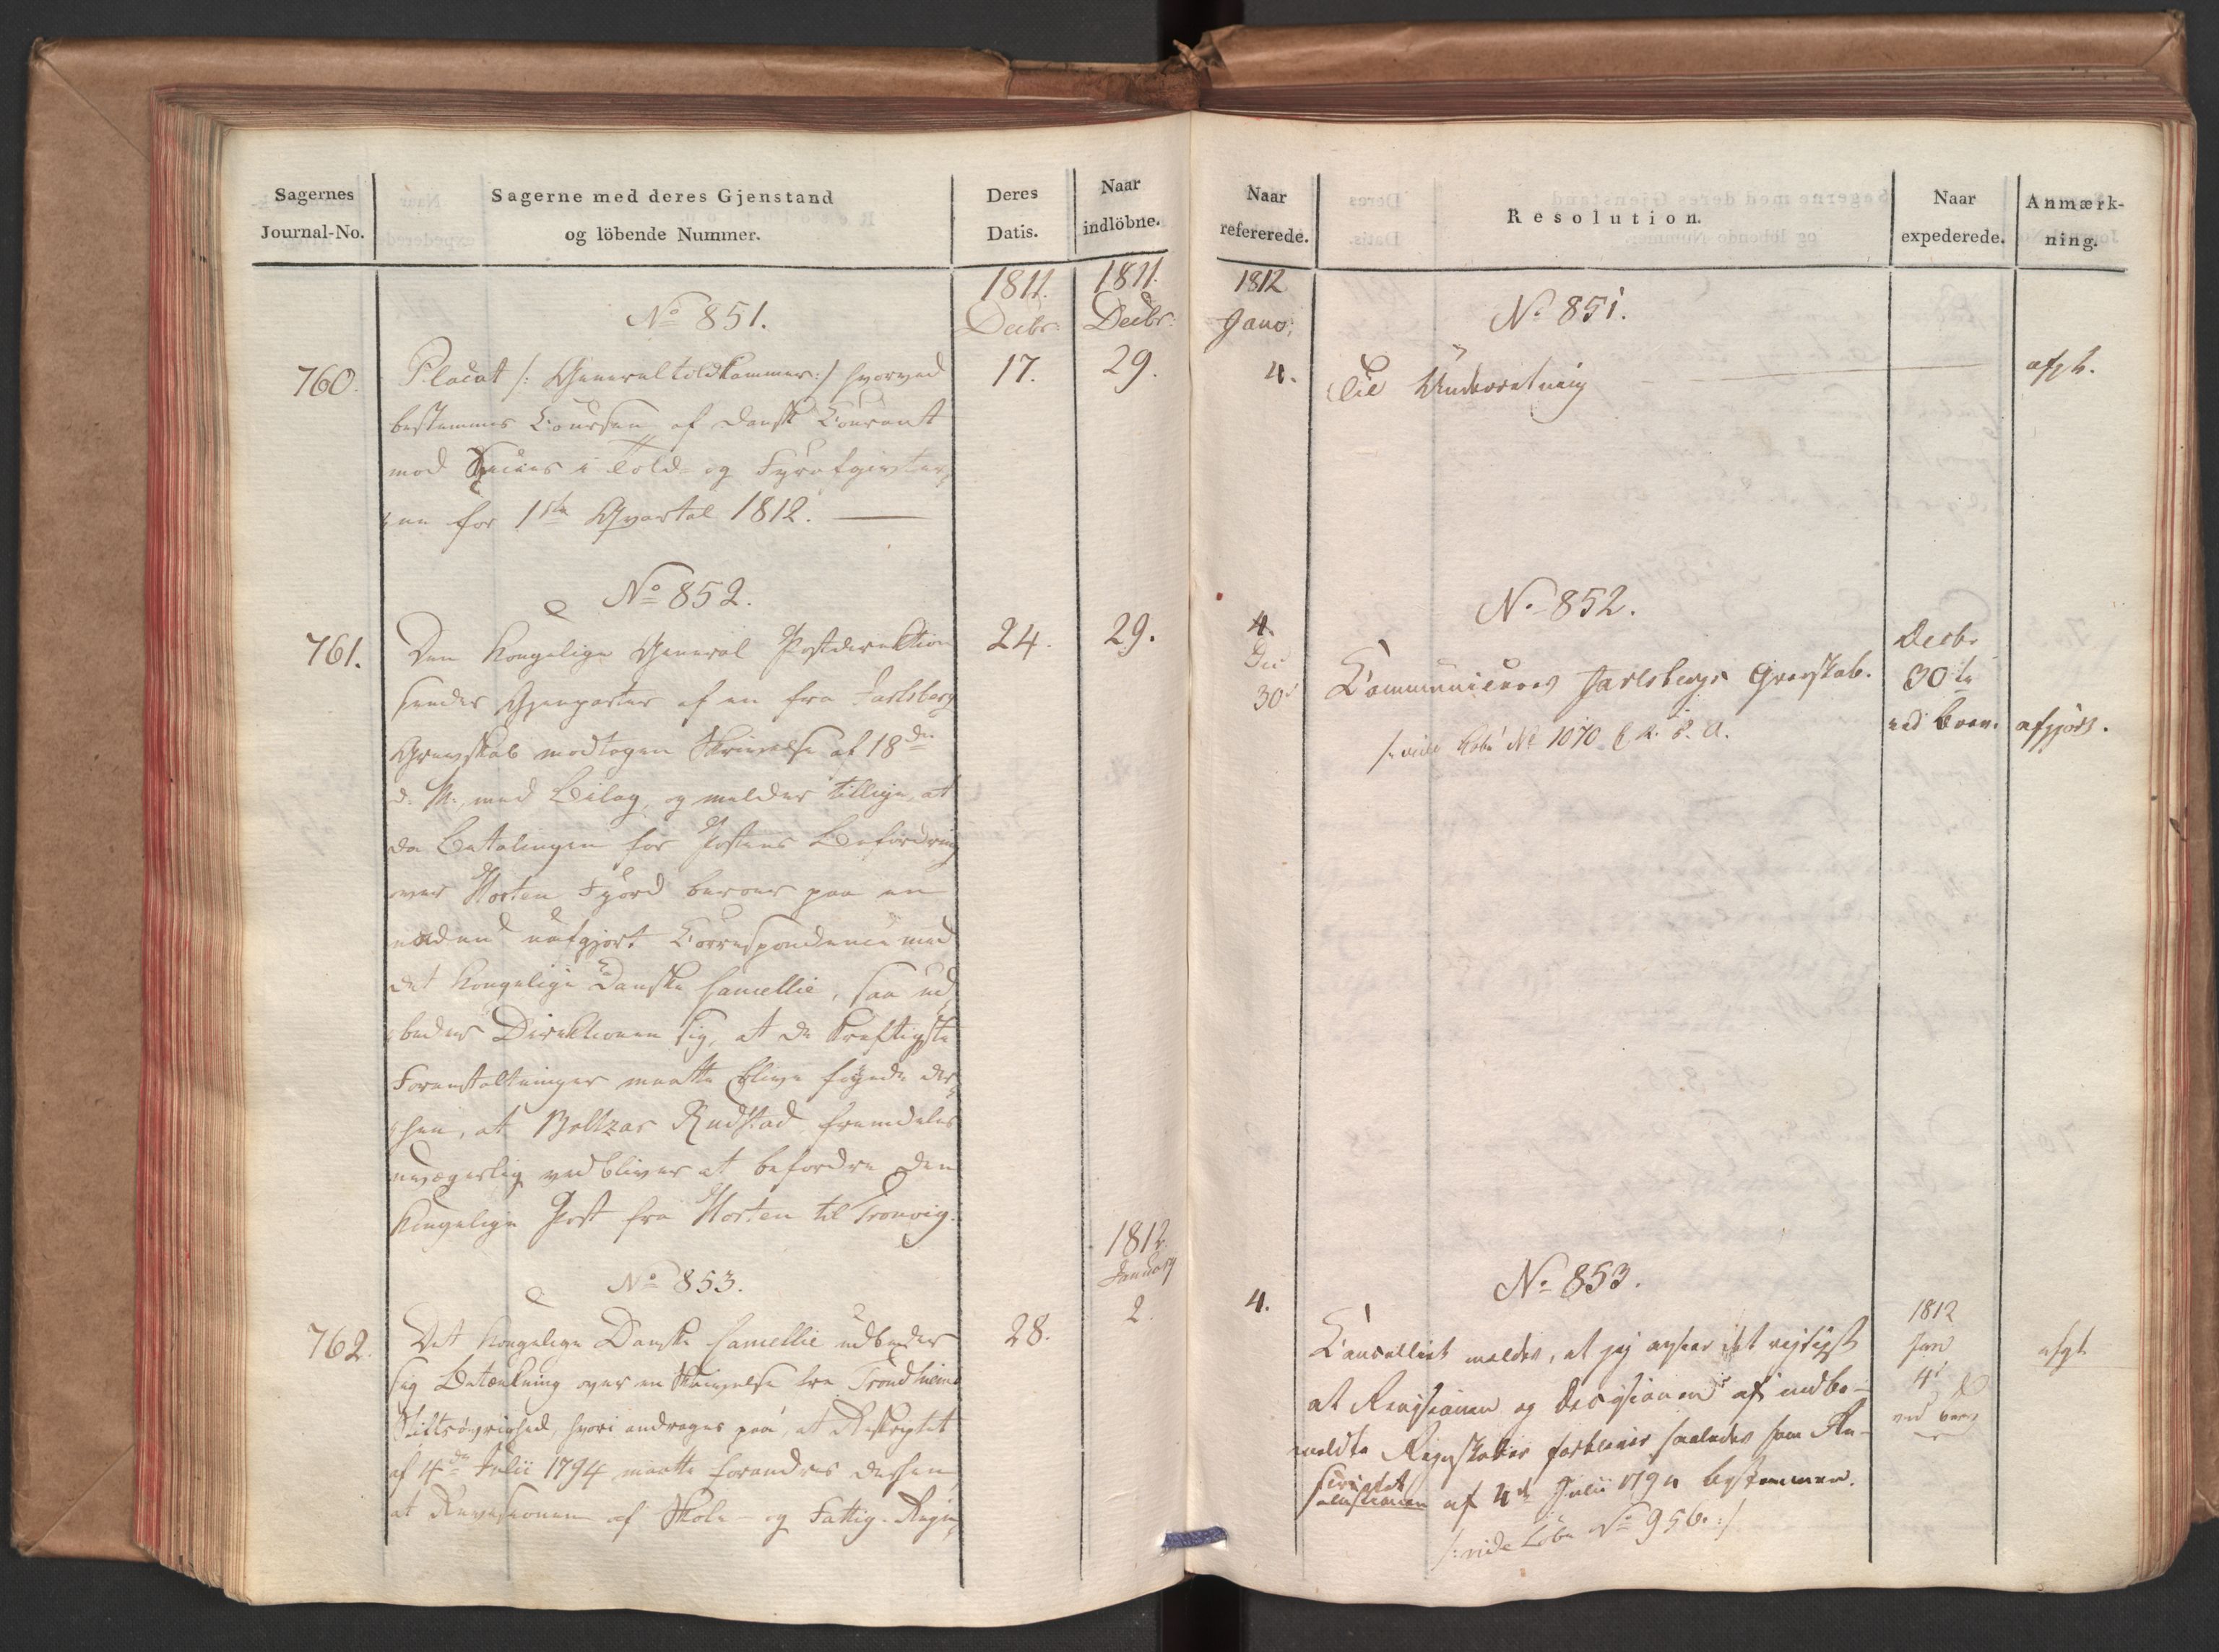 Sagernes
Journal-No.
Sagerne med deres Gjenstand
og löbende Nummer.
Deres
Datis.
Naar
indlöbne.
1811.
Decbr:
1811.
Decbr:
No 851.
760.
Placat /: Generaltoldkammer :/ hvorved
17.
29.
bestemmes Coursen af dansk Courant
mod Species i Told- og Fyrafgivter¬
ne for 1ste Qvartal 1812.
No 852.
761.
Den Kongelige General Postdirektion
24.
29.
sender Gjenparter af en fra Jarlsberg
Grevskab modtagen Skrivelse af 18de
d. M., med Bilag, og melder tillige, at
da Betalingen for Postens Befordring
over Horten Fjord beroer paa en
endnu uafgjort Correspondence med
det Kongelige Danske Cancellie, saa ud¬
beder Direktionen sig, at de kraftigste
Foranstaltninger maatte blive føiede der¬
hen, at Beltzar Rudstad fremdeles
uvægerlig vedbliver at befordre den
Kongelige Post fra Horten til Tronvig.
No 853.
1812.
January
762.
Det Kongelige Danske Cancellie udbeder
28.
2.
sig Betænkning over en Skrivelse fra Trondhiems
Stiftsøvrighed, hvori andrages paa, at Reskriptet
af 4de Julii 1794 maatte forandres derhen,
at Revisionen af Skole- og Fattig-Regn¬
Naar
refererede.
Resolution.
Naar
expederede.
Anmærk-
ning.
1812
Janv:
No 851.
4.
Til Underretning
afgh.
No 852.
4.
Dec
30
Communiceres Jarlsbergs Grevskab.
/: vide Løbe No 1070
Decbr
30te
ved Brev.
afgjort.
No 853.
4.
Cancelliet meldes, at jeg anseer det rigtigst
at Revisionen og Decisionen af ommeldte
Regnskaber forbliver saaledes som Re-
scriptet af 4de Julii 1794 bestemmer.
/: vide Løbe No 956. :/
1812
Jan
4
ved Brev
afgt.